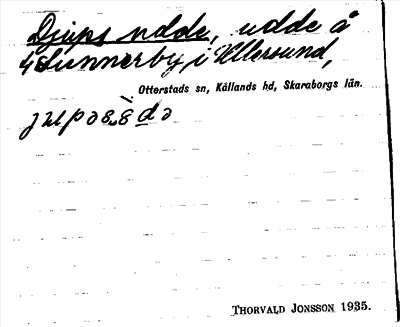 Djups udde, udde å
Sunnerby i Ullersund,
Otterstads sn, Kållands hd, Skaraborgs län.
THORVALD JONSSON 1935.